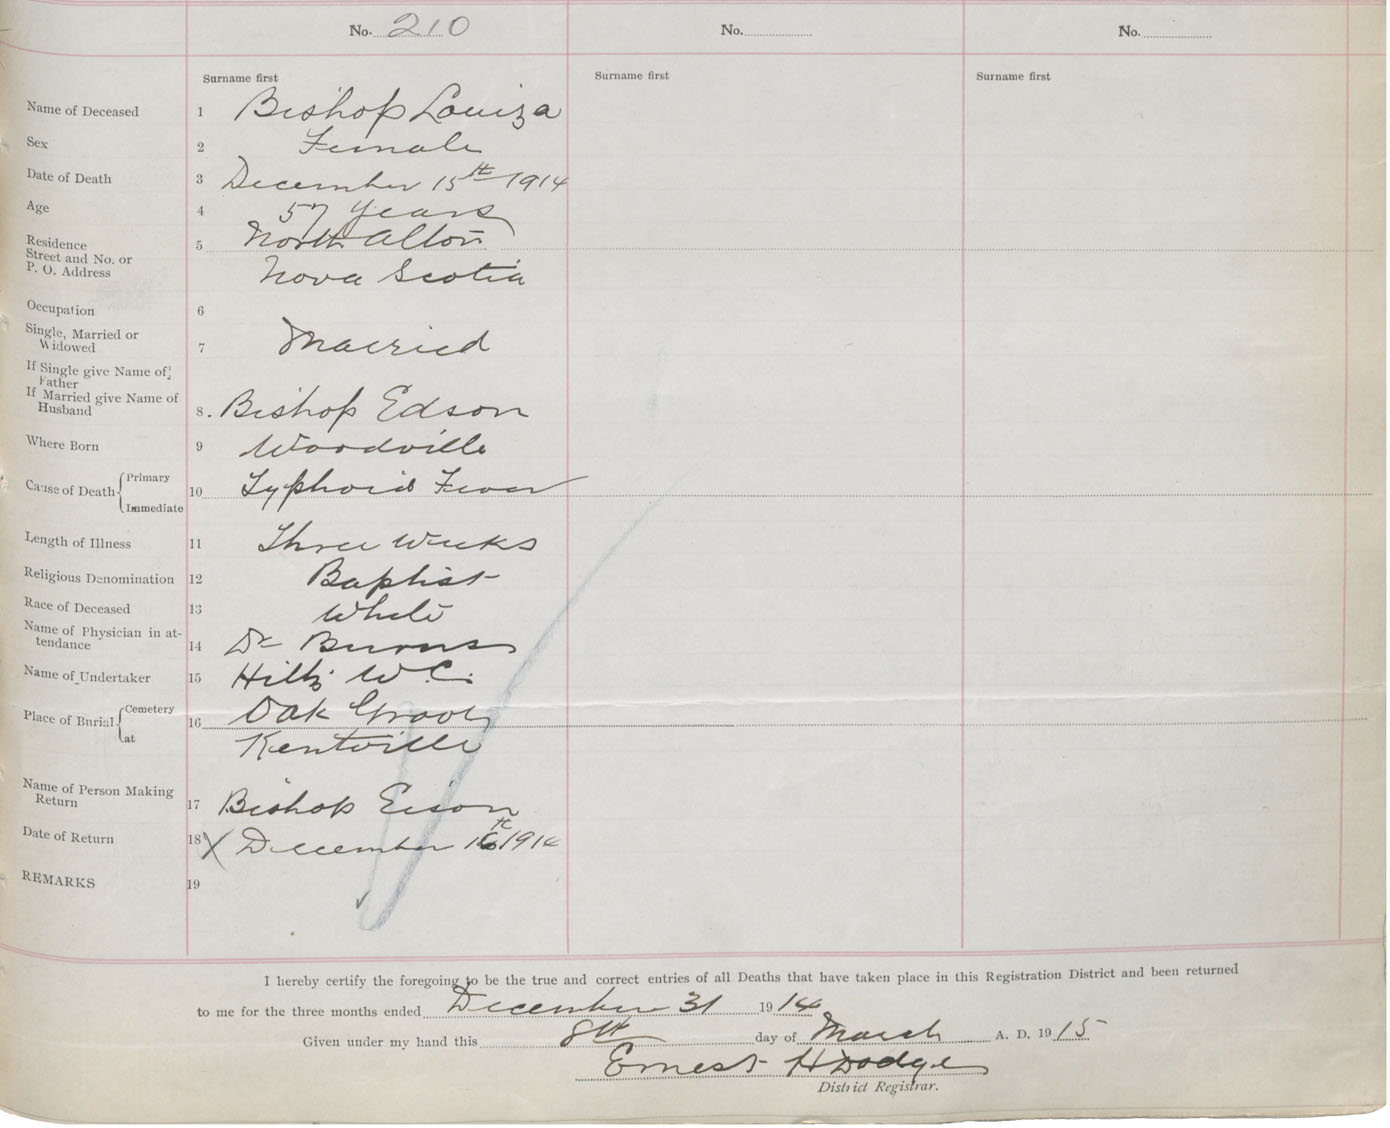 No. 210 No. No.
Surname first Surname first Surname first
Name of Deceased 1 Bishop Louiza
Sex 2 Female
Date of Death 3 December 15th 1914
Age 4 57 years
Residence 5 North Alton
Street and No. or
P. O. Address Nova Scotia
Occupation 6
Single, Married or
Widowed 7 Married
If Single give Name of
Father
If Married give Name of
Husband 8. Bishop Edson
Where Born 9 Woodville
Cause of Death Primary 10 Typhoid Fever
Immediate
Length of Illness 11 Three weeks
Religious Denomination 12 Baptist
Race of Deceased 13 White
Name of Physician in at-
tendance 14 Dr Burns
Name of Undertaker 15 Hiltz W.C.
Place of Burial Cemetery 16 Oak Grove
at Kentville
Name of Person Making
Return 17 Bishop Eison
Date of Return 18 X December 16th 1914
REMARKS 19
I hereby certify the foregoing to be the true and correct entries of all Deaths that have taken place in this Registration District and been returned
to me for the three months ended December 31 1914
Given under my hand this 8th day of March A. D. 1915
Ernest H Dodge
District Registrar.